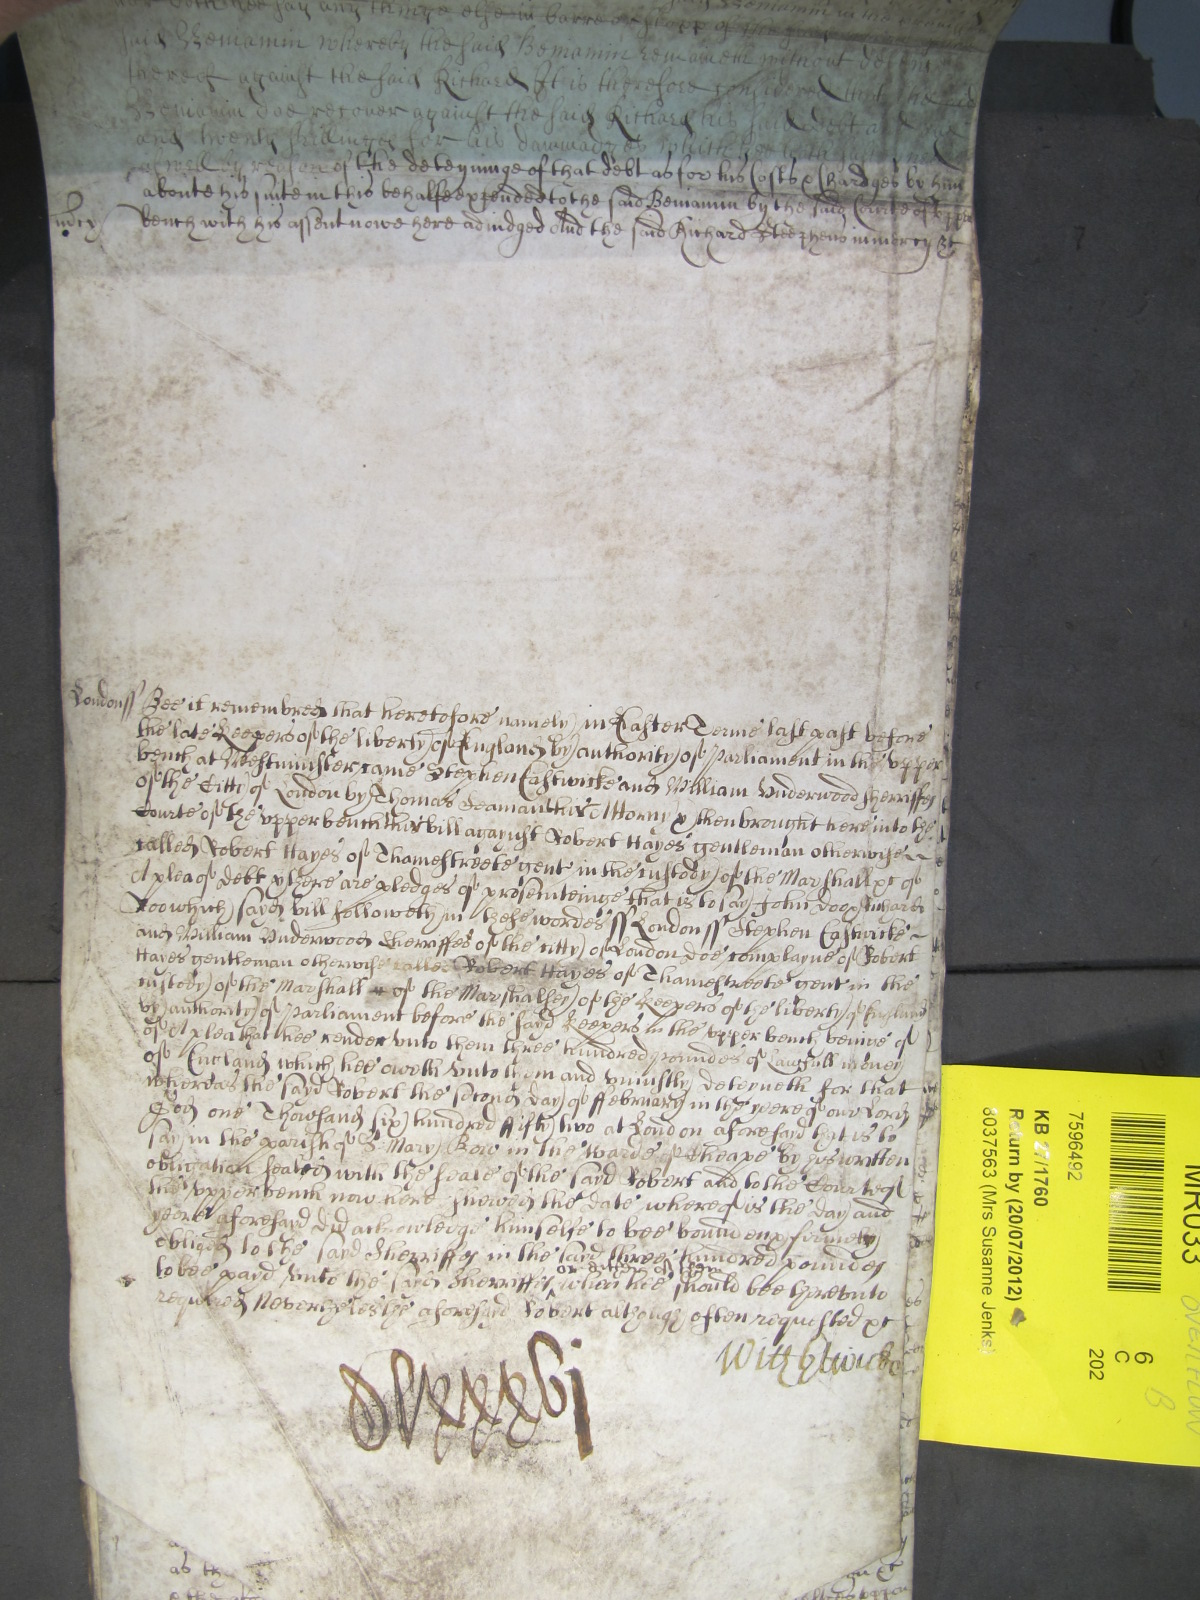 nor doth hee say any thinge else in barre
said Beniamin whereby the said Beniamin remaineth without defence
thereof against the said Richard It is therefore considered that the said
Beniamin doe recover against the said Richard his said debt and
and twenty shillinges for his dammages which hee hath
aswell by reason of the deteyninge of that debt as for his Costs & Chardges by him
aboute his suite in this behalfe expended to the said Beniamin by the said Courte of upper
Bench with his assent nowe here adiudged And the said Richard Steephens in mercy &c
mercy
London ss Bee it remembred that heretofore namely in Easter Terme last past before
the late Keepers of the liberty of England by authority of Parliament in the upper
bench at Westminster came Stephen Eastwicke and William Underwood Sherriffes
of the Citty of London by Thomas Seaman their Attorny & then brought here into the
Courte of the upper bench their bill against Robert Hayes gentleman otherwise
called Robert Hayes of Thamestreete gent in the custody of the Marshall &c of
A plea of debt & there are pledges of prosecuteinge that is to say John Doo & Richard
Roo which sayd bill followeth in these wordes ss London ss Stephen Eastwicke
and William Underwood Sherriffes of the citty of London doe complayne of Robert
Hayes gentleman otherwise called Robert Hayes of Thamestreete gent in the
custody of the Marshall of the Marshalsey of the Keepers of the liberty of England
by authority of Parliament before the sayd Keepers in the upper bench beinge of
of A plea that hee render unto them three hundred poundes of Lawfull money
of England which hee oweth unto them and uniustly deteyneth for that
whereas the sayd Robert the second day of ffebruary in the yeere of our Lord
God one Thowsand six hundred ffifty two at London aforesayd that is to
say in the parish of St Mary Bow in the Warde of Cheape by his written
obligation sealed with the seale of the said Robert and to the Court of
the upper bench now here shewed the date whereof is the day and
yeare aforesayd did acknowledge himselfe to bee bound and firmely
obliged to the sayd Sherriffes in the sayd three hundred poundes
to bee payd unto the sayd Sherriffes or either of them when hee should bee thereunto
required Neverthelesse the aforesayd Robert although often requested &c
Witt
MR033
6
C
202
7596492
KB 27/1760
Return by (20/07/2012)
8037563 (Mrs Susanne Jenks)
overflow
B
as th